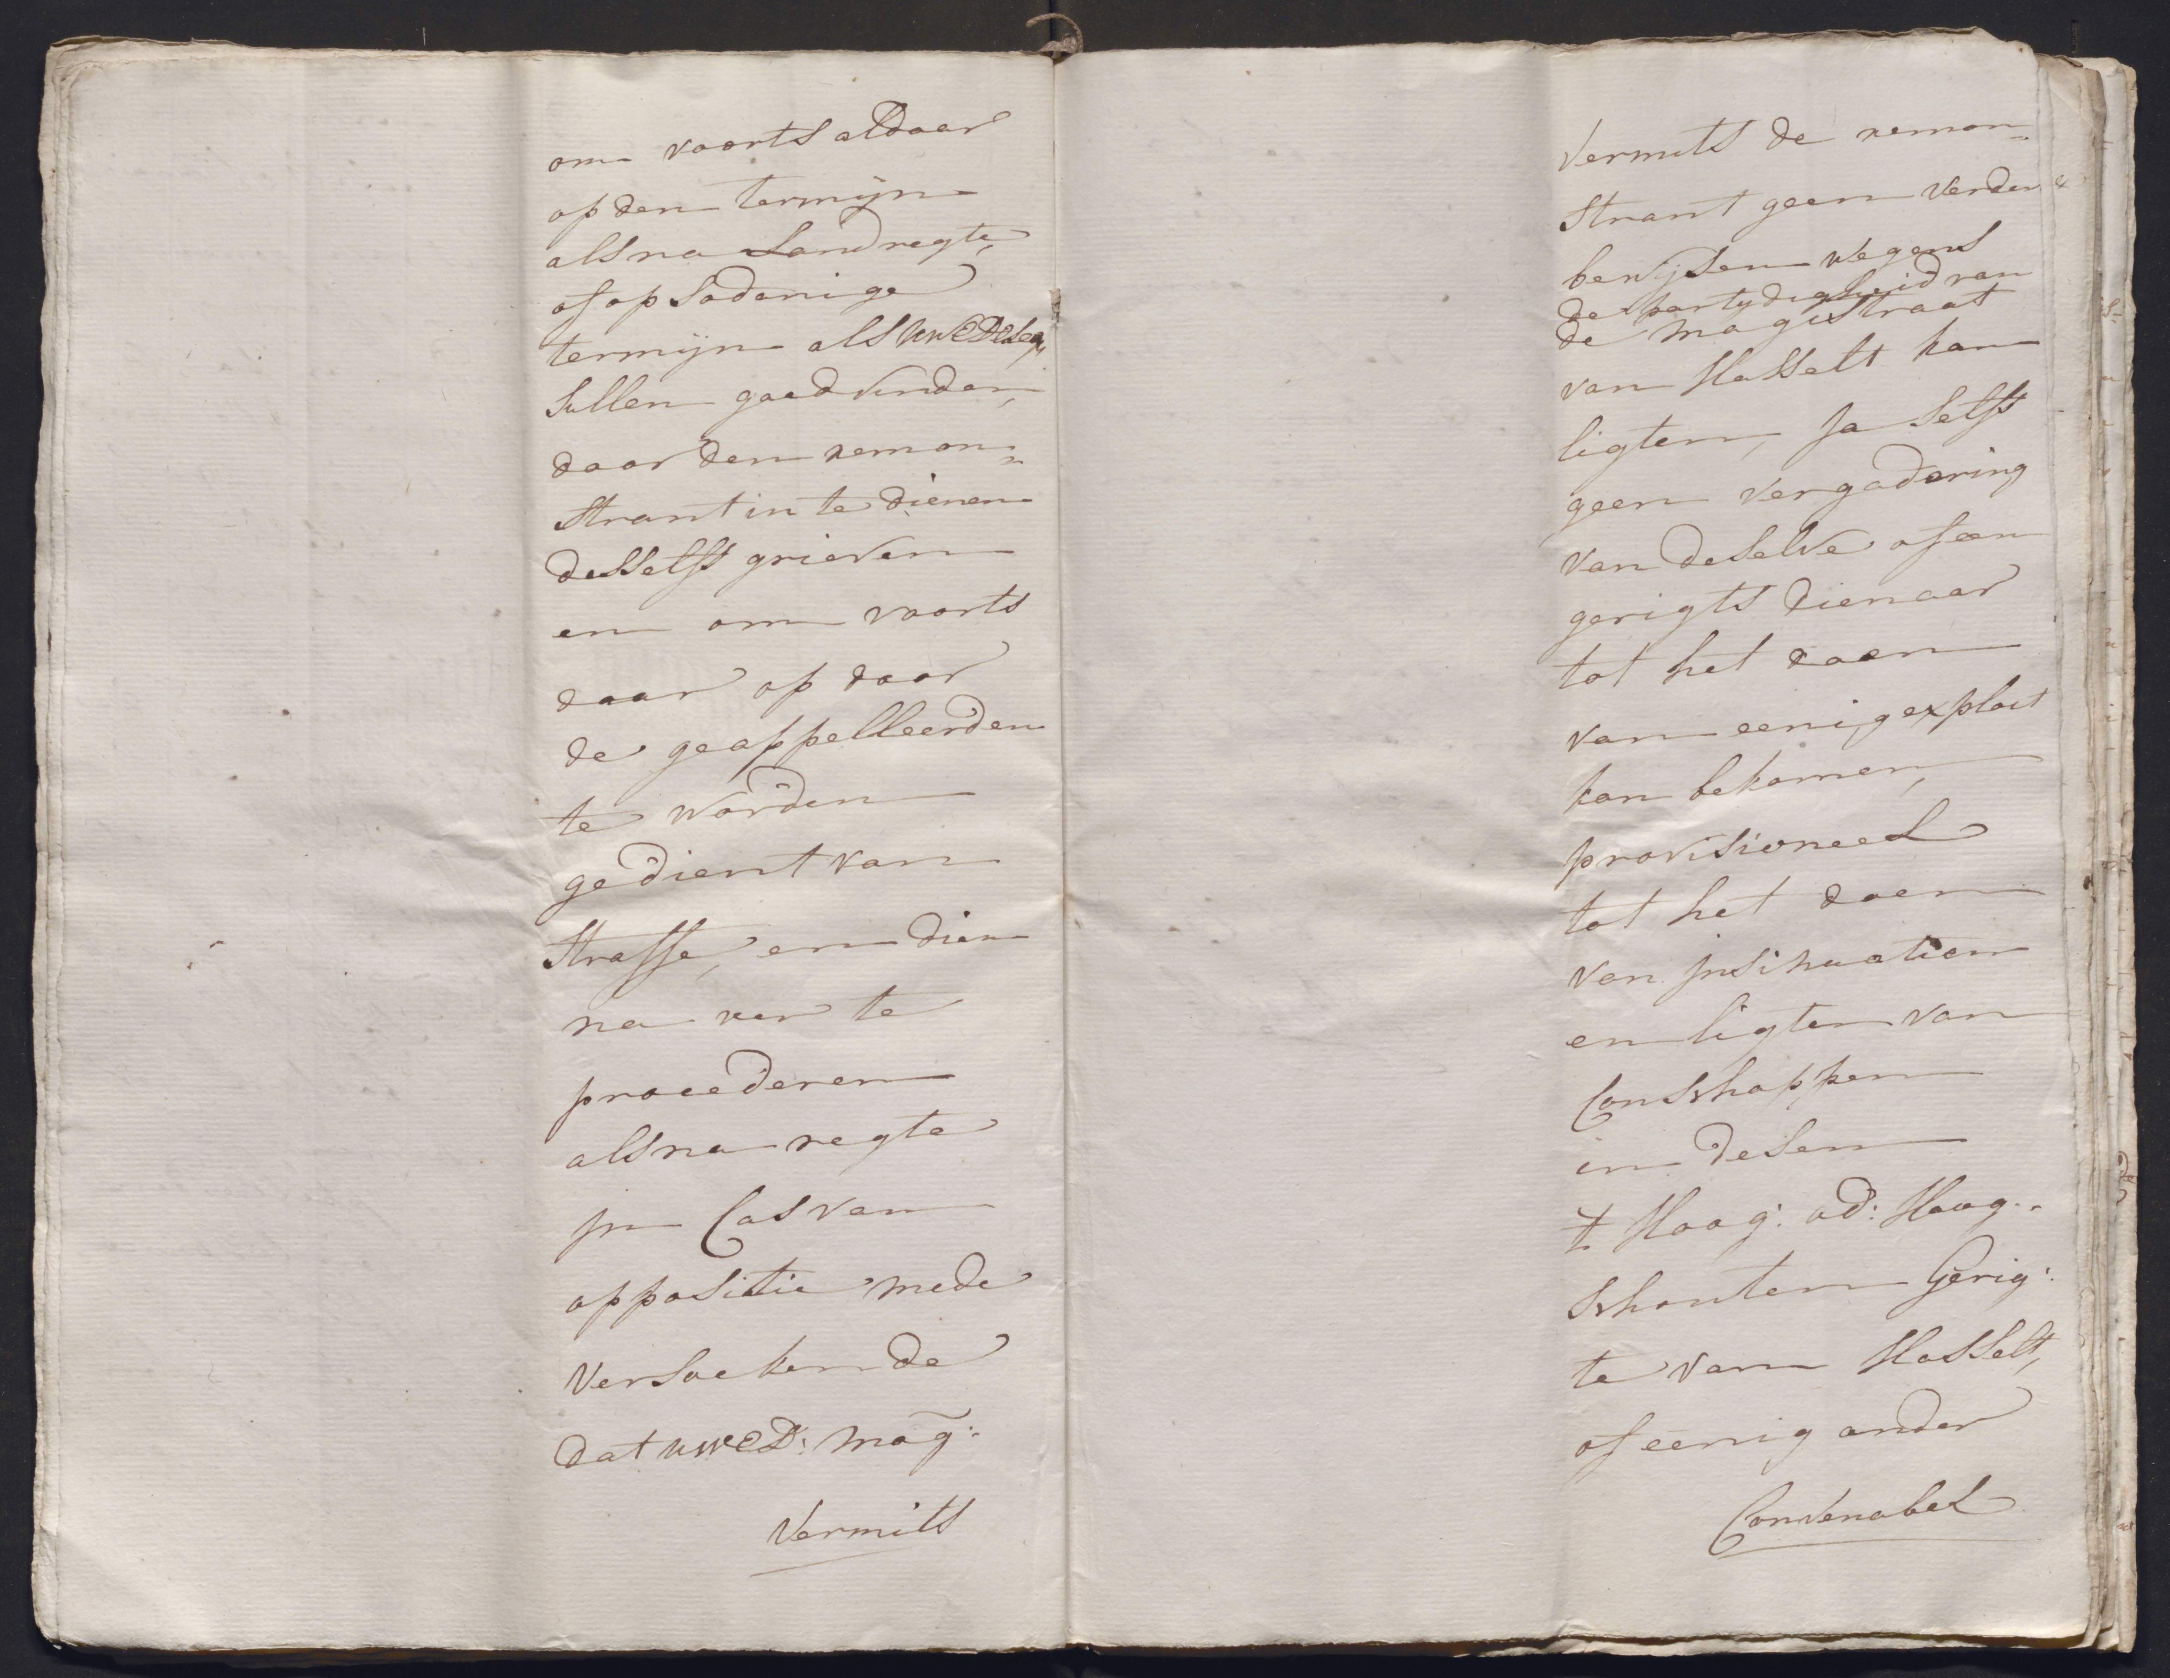 om voorts aldaar
op den termijn
als na Landregte,
of op sodanige
termijn als UwEdele
sullen goedvinden,
door den remon=
strant in te dienen
desselfs grieven
en om voorts
daar op door
de geappelleerden
te worden
gedient van
straffe, en dien
na ver te
procederen
als na regte
in Cas van
oppositie mede
versoekende
dat uwEd: mog:
vermits
vermits de remon=
strant geen verder
bewijsen wegens
de partydigheid van
de magistraat
van Hasselt kan
ligten, ja selfs
geen vergadering
van deselve of een
gerigts dienaar
tot het doen
van eenig exploit
kan bekomen,
provisioneel
tot het doen
van insinuatien
en ligten van
Conschappen
in desen
't Hoog: ad: Hoog:
schouten Gerig:
te van Hasselt,
of eenig ander
Convenabel